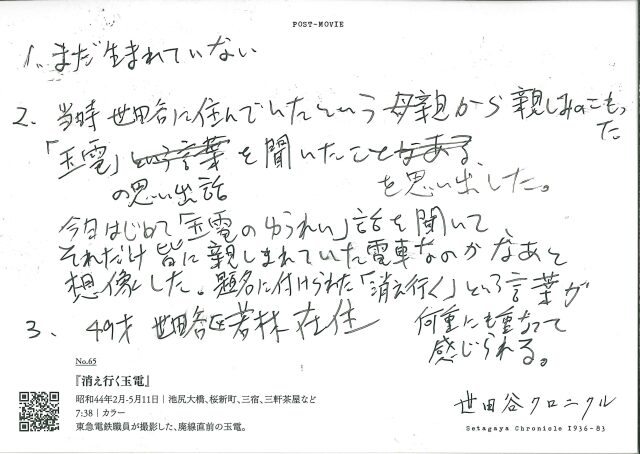 POST-MOVIE
1. まだ生まれていない
2. 当時世田谷に住んでいたという母親から親しみのこもった
「玉電」という言葉を聞いたことがある
の思い出話 を思い出した。
今日はじめて「玉電のゆうれい」話を聞いて
それだけ皆に親しまれていた電車なのかなあと
想像した。題名に付けられた「消え行く」という言葉が
何重にも重なって
感じられる。
3. 49才 世田谷区若林在住
No.65
『消え行く玉電』
昭和44年2月-5月11日|池尻大橋、桜新町、三宿、三軒茶屋など
7:38|カラー
東急電鉄職員が撮影した、廃線直前の玉電。
世田谷クロニクル
Setagaya Chronicle 1936-83